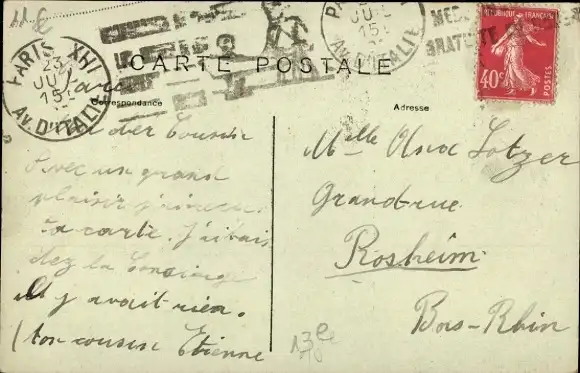 11 e
PARIS XIII
23
JUIL
15
AV. D'ITALIE
JUIL
15
AV. D'ITALIE
GRATUITE
RÉPUBLIQUE FRANÇAISE
40c
POSTES
CARTE POSTALE
Correspondance
Adresse
Cousin
Avec un grand
plaisir
ta carte. J'étais
chez la Concierge
il y avait rien.
ton cousin Etienne
Melle Lotzer
Grand-rue
Rosheim
Bas-Rhin
13e